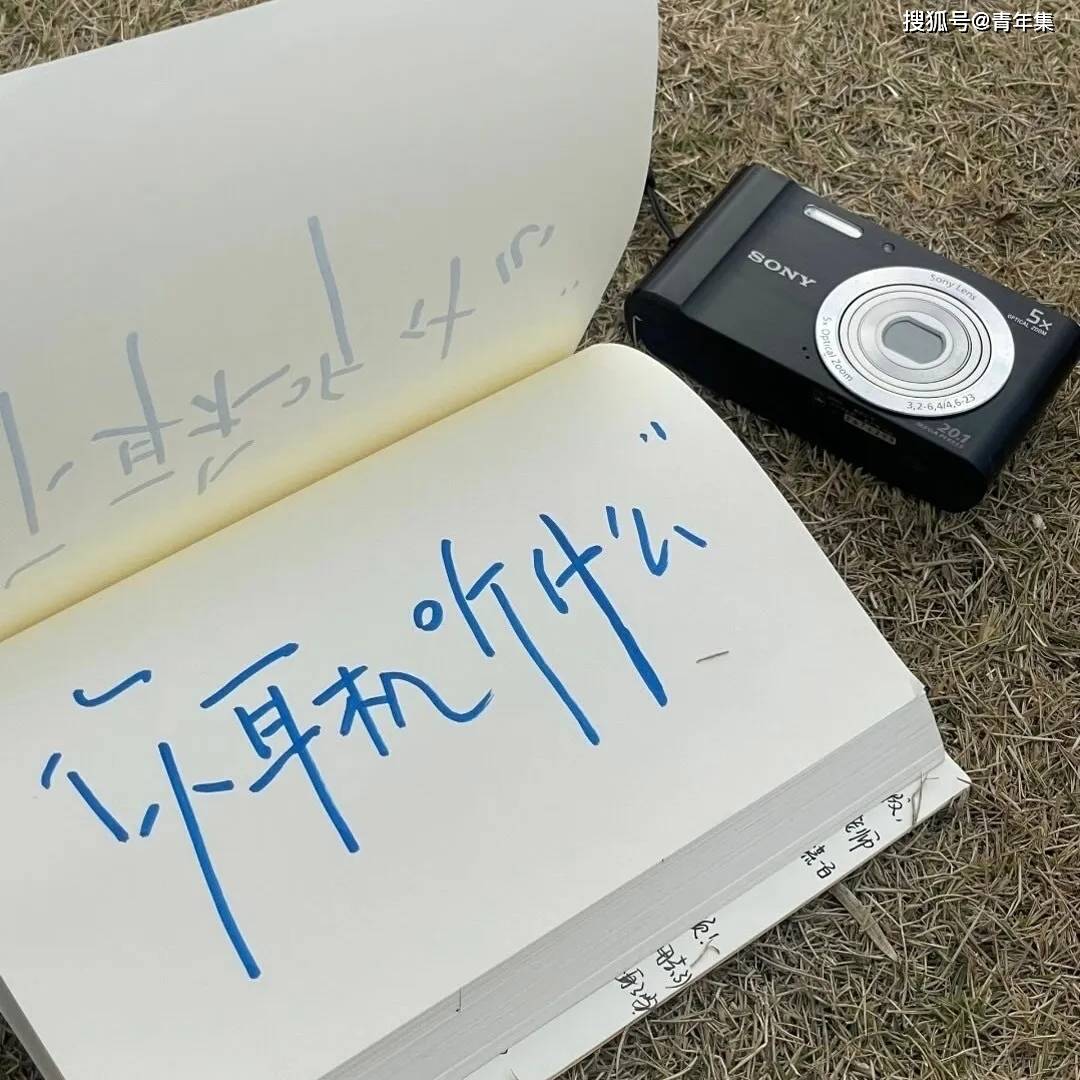 搜狐号@青年集
SONY
Sony Lens
5x
OPTICAL ZOOM
5x Optical Zoom
3,2-6,4/4,6-23
20.1
MEGA PIXELS
你耳机听什么"